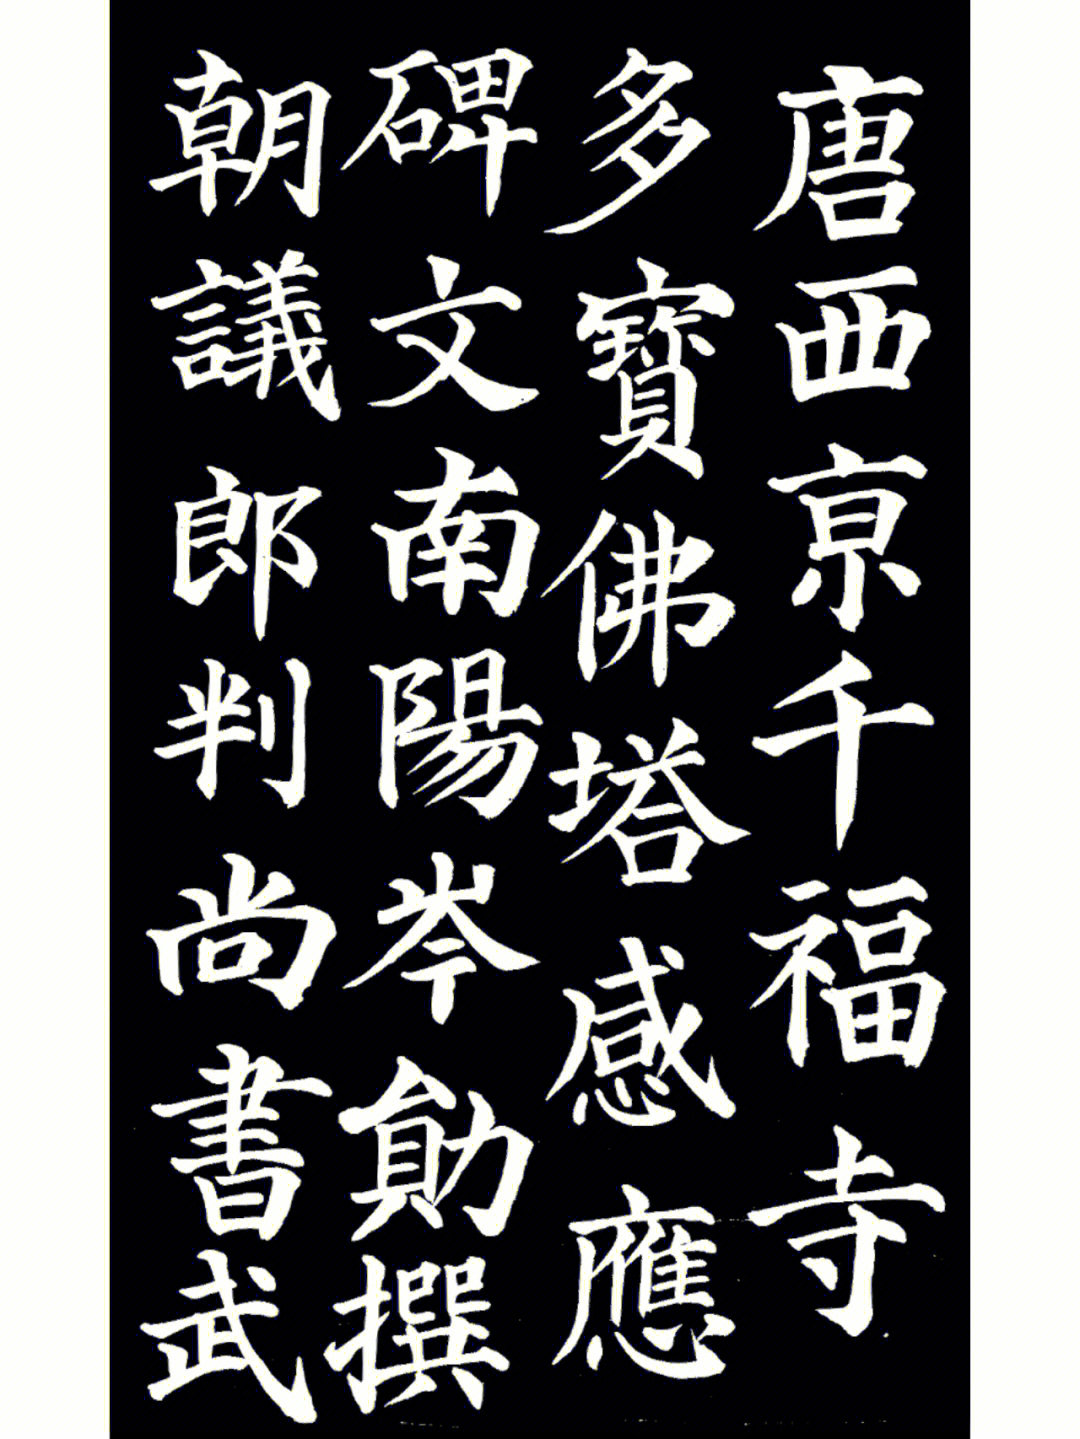 唐西京千福寺
多寶佛塔感應
碑文南陽岑勛撰
朝議郎判尚書武